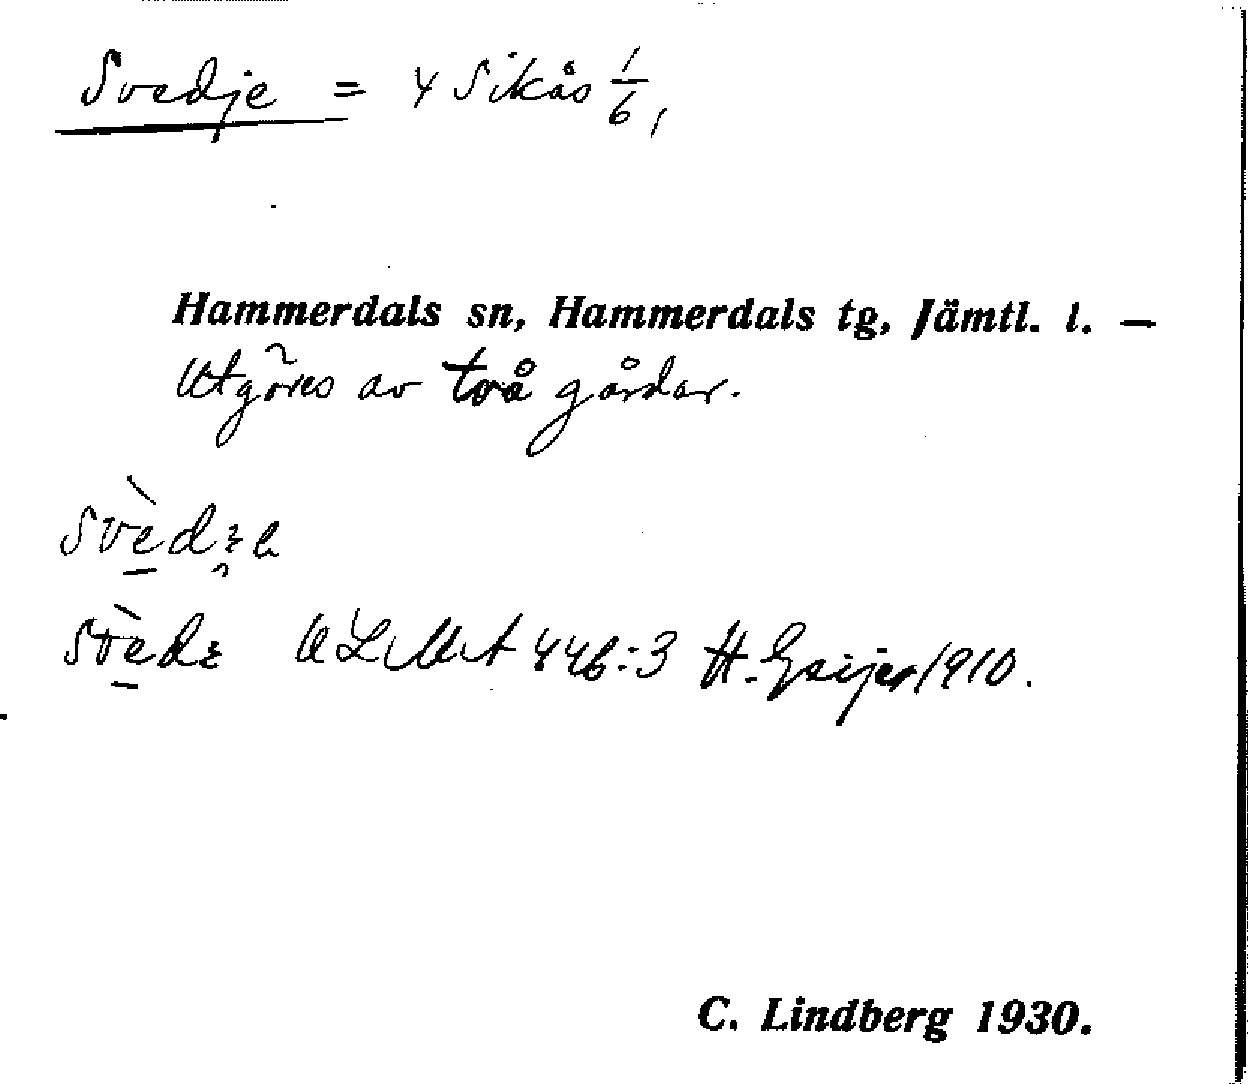 Svedje = 4 Sikås 1/6,
Hammerdals sn, Hammerdals tg, Jämtl. l. —
Utgöres av två gårdar.
ULMA 446:3 H. Geijer 1910.
C. Lindberg 1930.